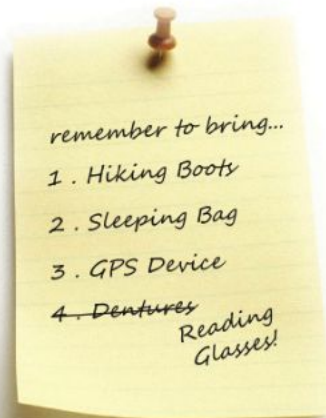 remember to bring...
1. Hiking Boots
2. Sleeping Bag
3. GPS Device
4. Dentures
Reading
Glasses!